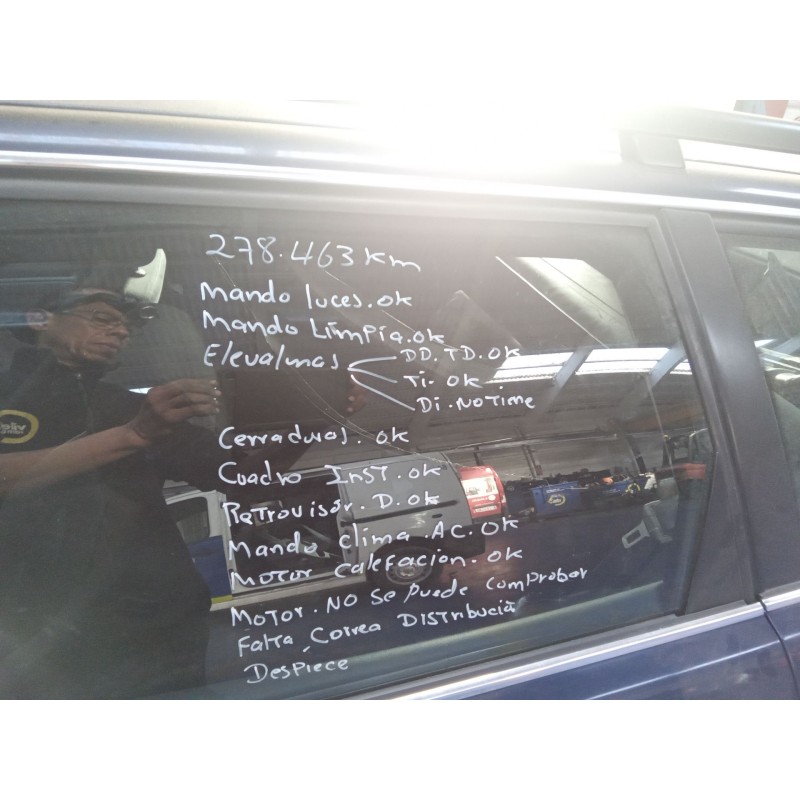 278.463 Km
Mando luces. ok
Mando Limpia. ok
Elevalunas
DD. TD. OK
Ti. OK.
Di. NO Time
Cerraduras. ok
Cuadro Inst. ok
Retrovisor. D. ok
Mando clima. AC. OK
Motor calefacion. OK
MOTOR. NO Se puede comprobar
Falta Correa DISTribucia
Despiece